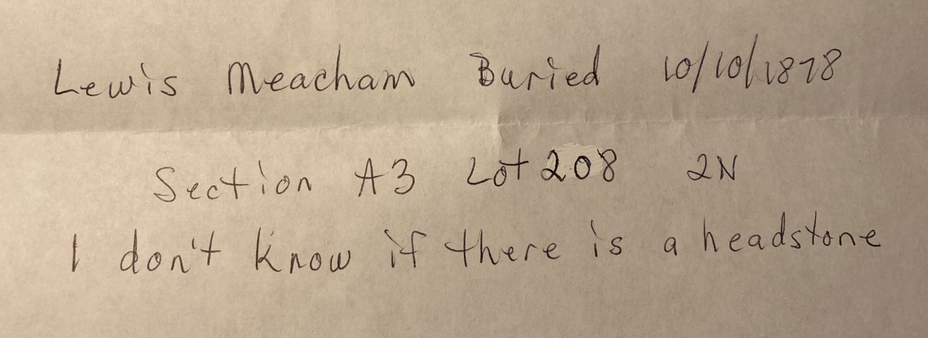 Lewis Meacham Buried 10/10/1878
Section A3 Lot 208 2N
I don't know if there is a headstone